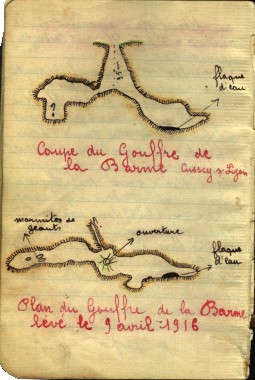 flaque
d'eau
Coupe du Gouffre de
la Barme Cussey s/ Lizon
marmites de
géants
ouverture
flaque
d'eau
Plan du Gouffre de la Barme
levé le 9 avril 1916